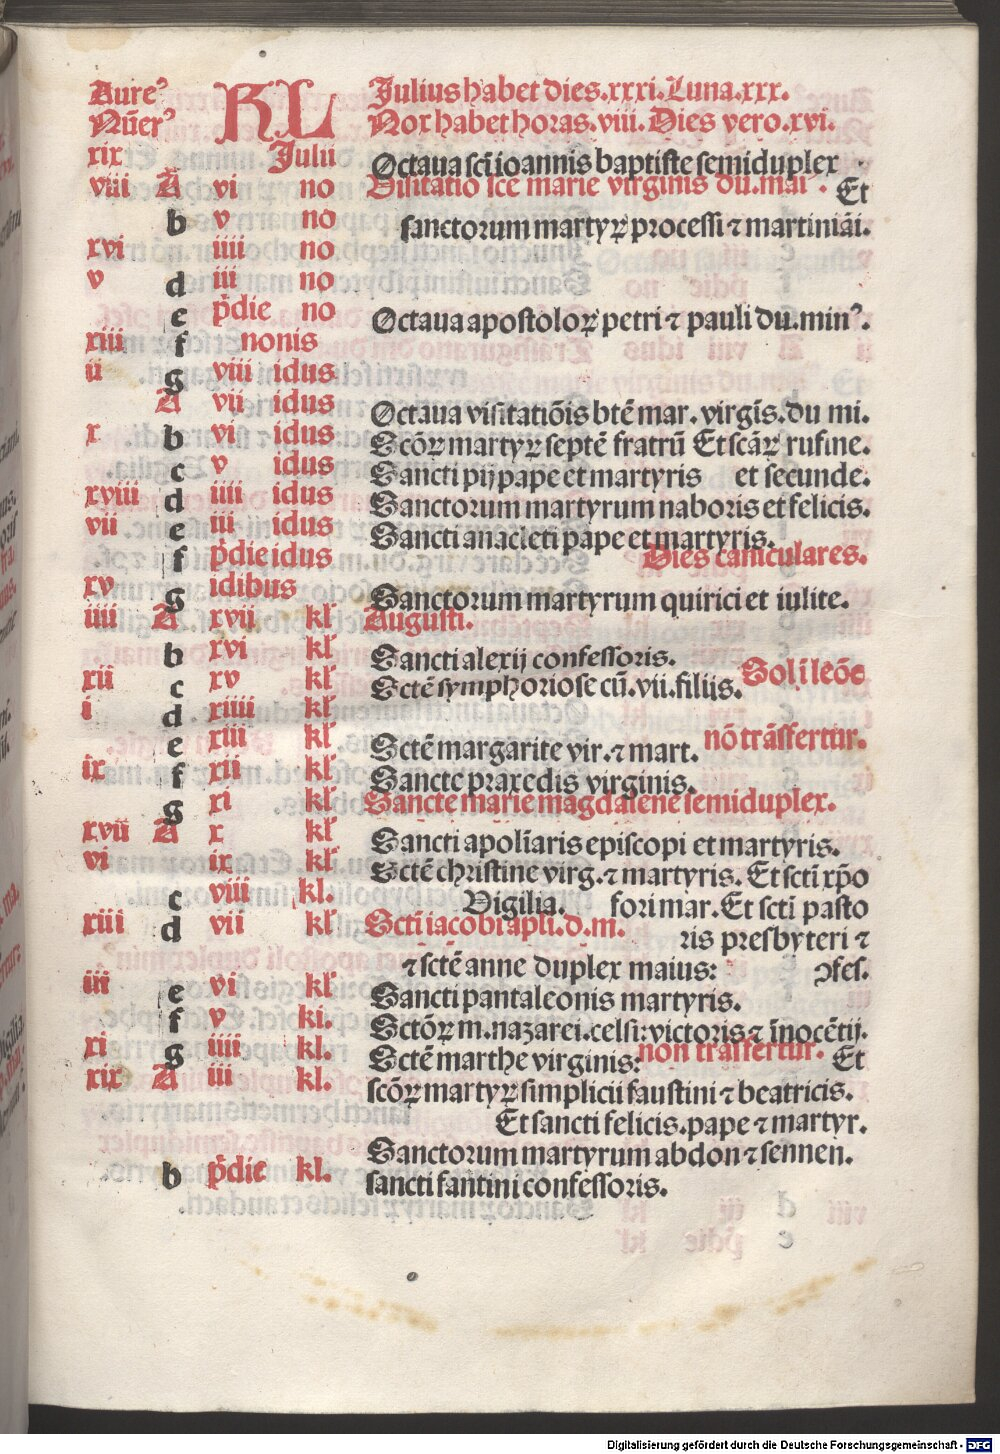 Aureꝰ KL Julius habet dies.xxxi.Luna.xxx.
Nūerꝰ Nox habet horas.viii.Dies vero.xvi.
xix Julii Octaua scī ioannis baptiste semiduplex
viii A vi no Visitatio sce marie virginis du.mai. Et
b v no sanctorum martyrꝝ processi ⁊ martiniāi.
xvi iiii no
v d iii no
e p̄die no Octaua apostoloꝝ petri ⁊ pauli du.minꝰ.
xiii f nonis
ii g viii idus
A vii idus Octaua visitatiōis btē mar.virgīs.du mi.
x b vi idus Scōꝝ martyꝝ septē fratrū Et scāꝝ rufine.
c v idus Sancti pij pape et martyris et secunde.
xviii d iiii idus Sanctorum martyrum naboris et felicis.
vii e iii idus Sancti anacleti pape et martyris.
f p̄die idus Dies caniculares.
xv g idibus Sanctorum martyrum quirici et iulite.
iiii A xvii kl' Augusti.
b xvi kl' Sancti alexij confessoris.
xii c xv kl' Sctē symphoriose cū.vii.filiis. Sol ī leōe
i d xiiii kl'
e xiii kl' Sctē margarite vir.⁊ mart. nō trāsfertur.
ix f xii kl' Sancte praxedis virginis.
g xi kl' Sancte marie magdalene semiduplex.
xvii A x kl' Sancti apolīaris episcopi et martyris.
vi ix kl' Sctē christine virg.⁊ martyris. Et sctī xp̄o
c viii kl. Vigilia. fori mar.Et sctī pasto
xiii d vii kl' Sctī iacobi apli.d.m. ris presbyteri ⁊
⁊ sctē anne duplex maius: ɔfes.
iii e vi kl' Sancti pantaleonis martyris.
f v kl. Sctōꝝ m.nazarei.celsi:victoris ⁊ īnocētij.
xi g iiii kl. Sctē marthe virginis: non trāsfertur. Et
xix A iii kl. scōꝝ martyꝝ simplicii faustini ⁊ beatricis.
Et sancti felicis.pape ⁊ martyr.
Sanctorum martyrum abdon ⁊ sennen.
b p̄die kl. sancti fantini confessoris.
Digitalisierung gefördert durch die Deutsche Forschungsgemeinschaft - DFG